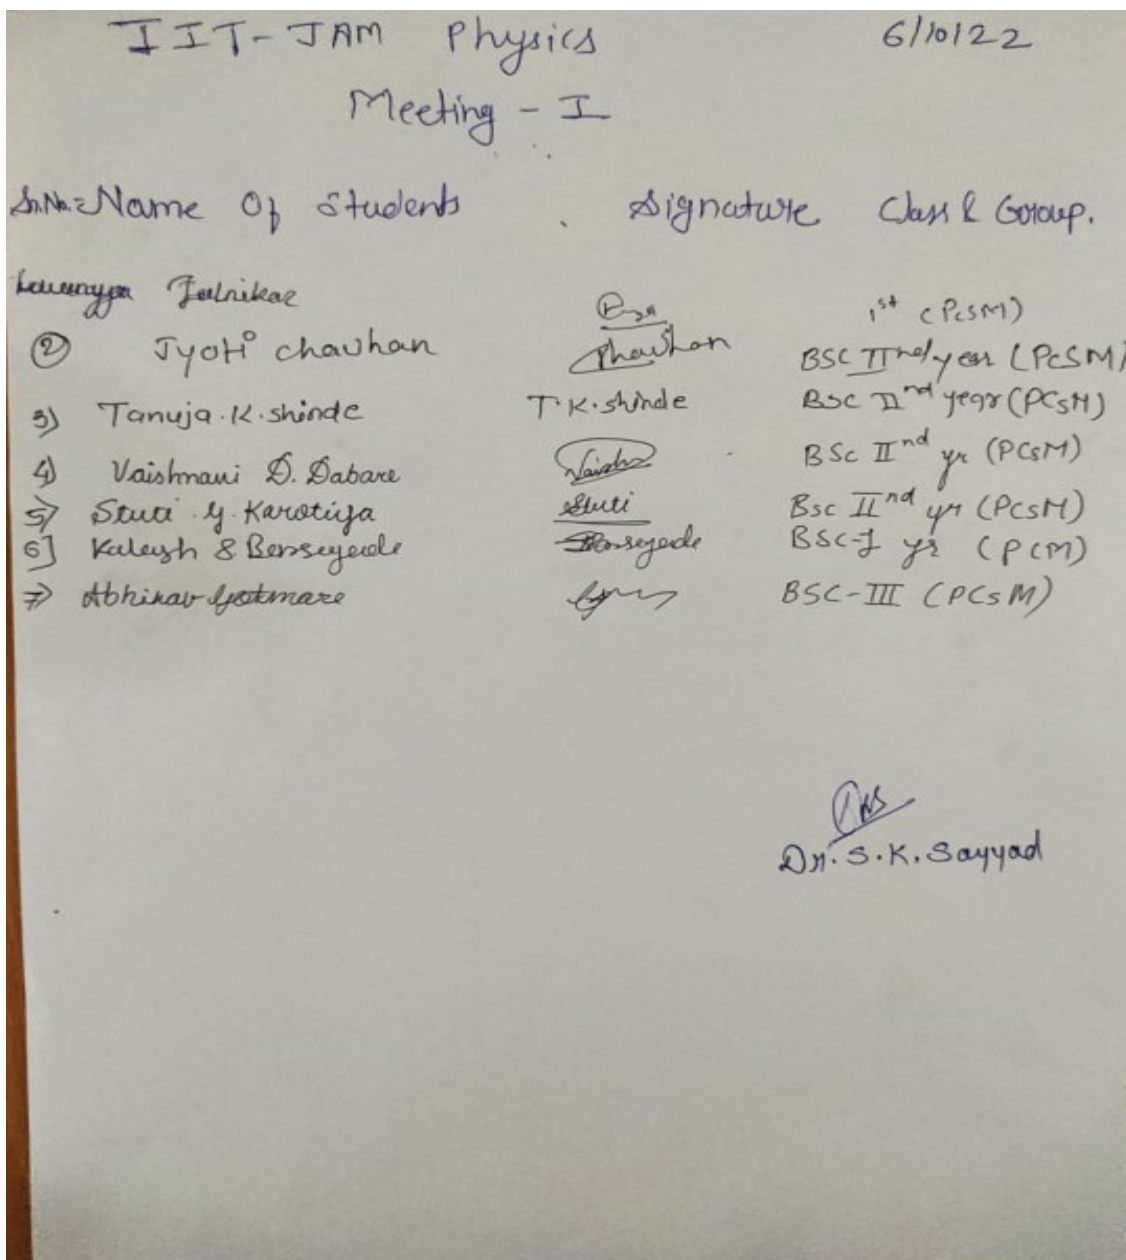 IIT-JAM Physics 6/10/22
Meeting - I
Sr.No. Name Of Students Signature Class & Group.
1st (PCSM)
② Jyoti chavhan Chavhan BSC IInd year (PCSM)
3) Tanuja.K.shinde T.K.shinde BSC IInd year (PCSM)
4) Vaishnavi D. Dabare Vaish BSc IInd yr (PCSM)
5) Stuti Y. Karotiya Stuti Bsc IInd yr (PCSM)
6] Bansegede BSC-I yr (PCM)
7) Abhinav Gotmare BSC-III (PCSM)
Dr. S.K. Sayyad